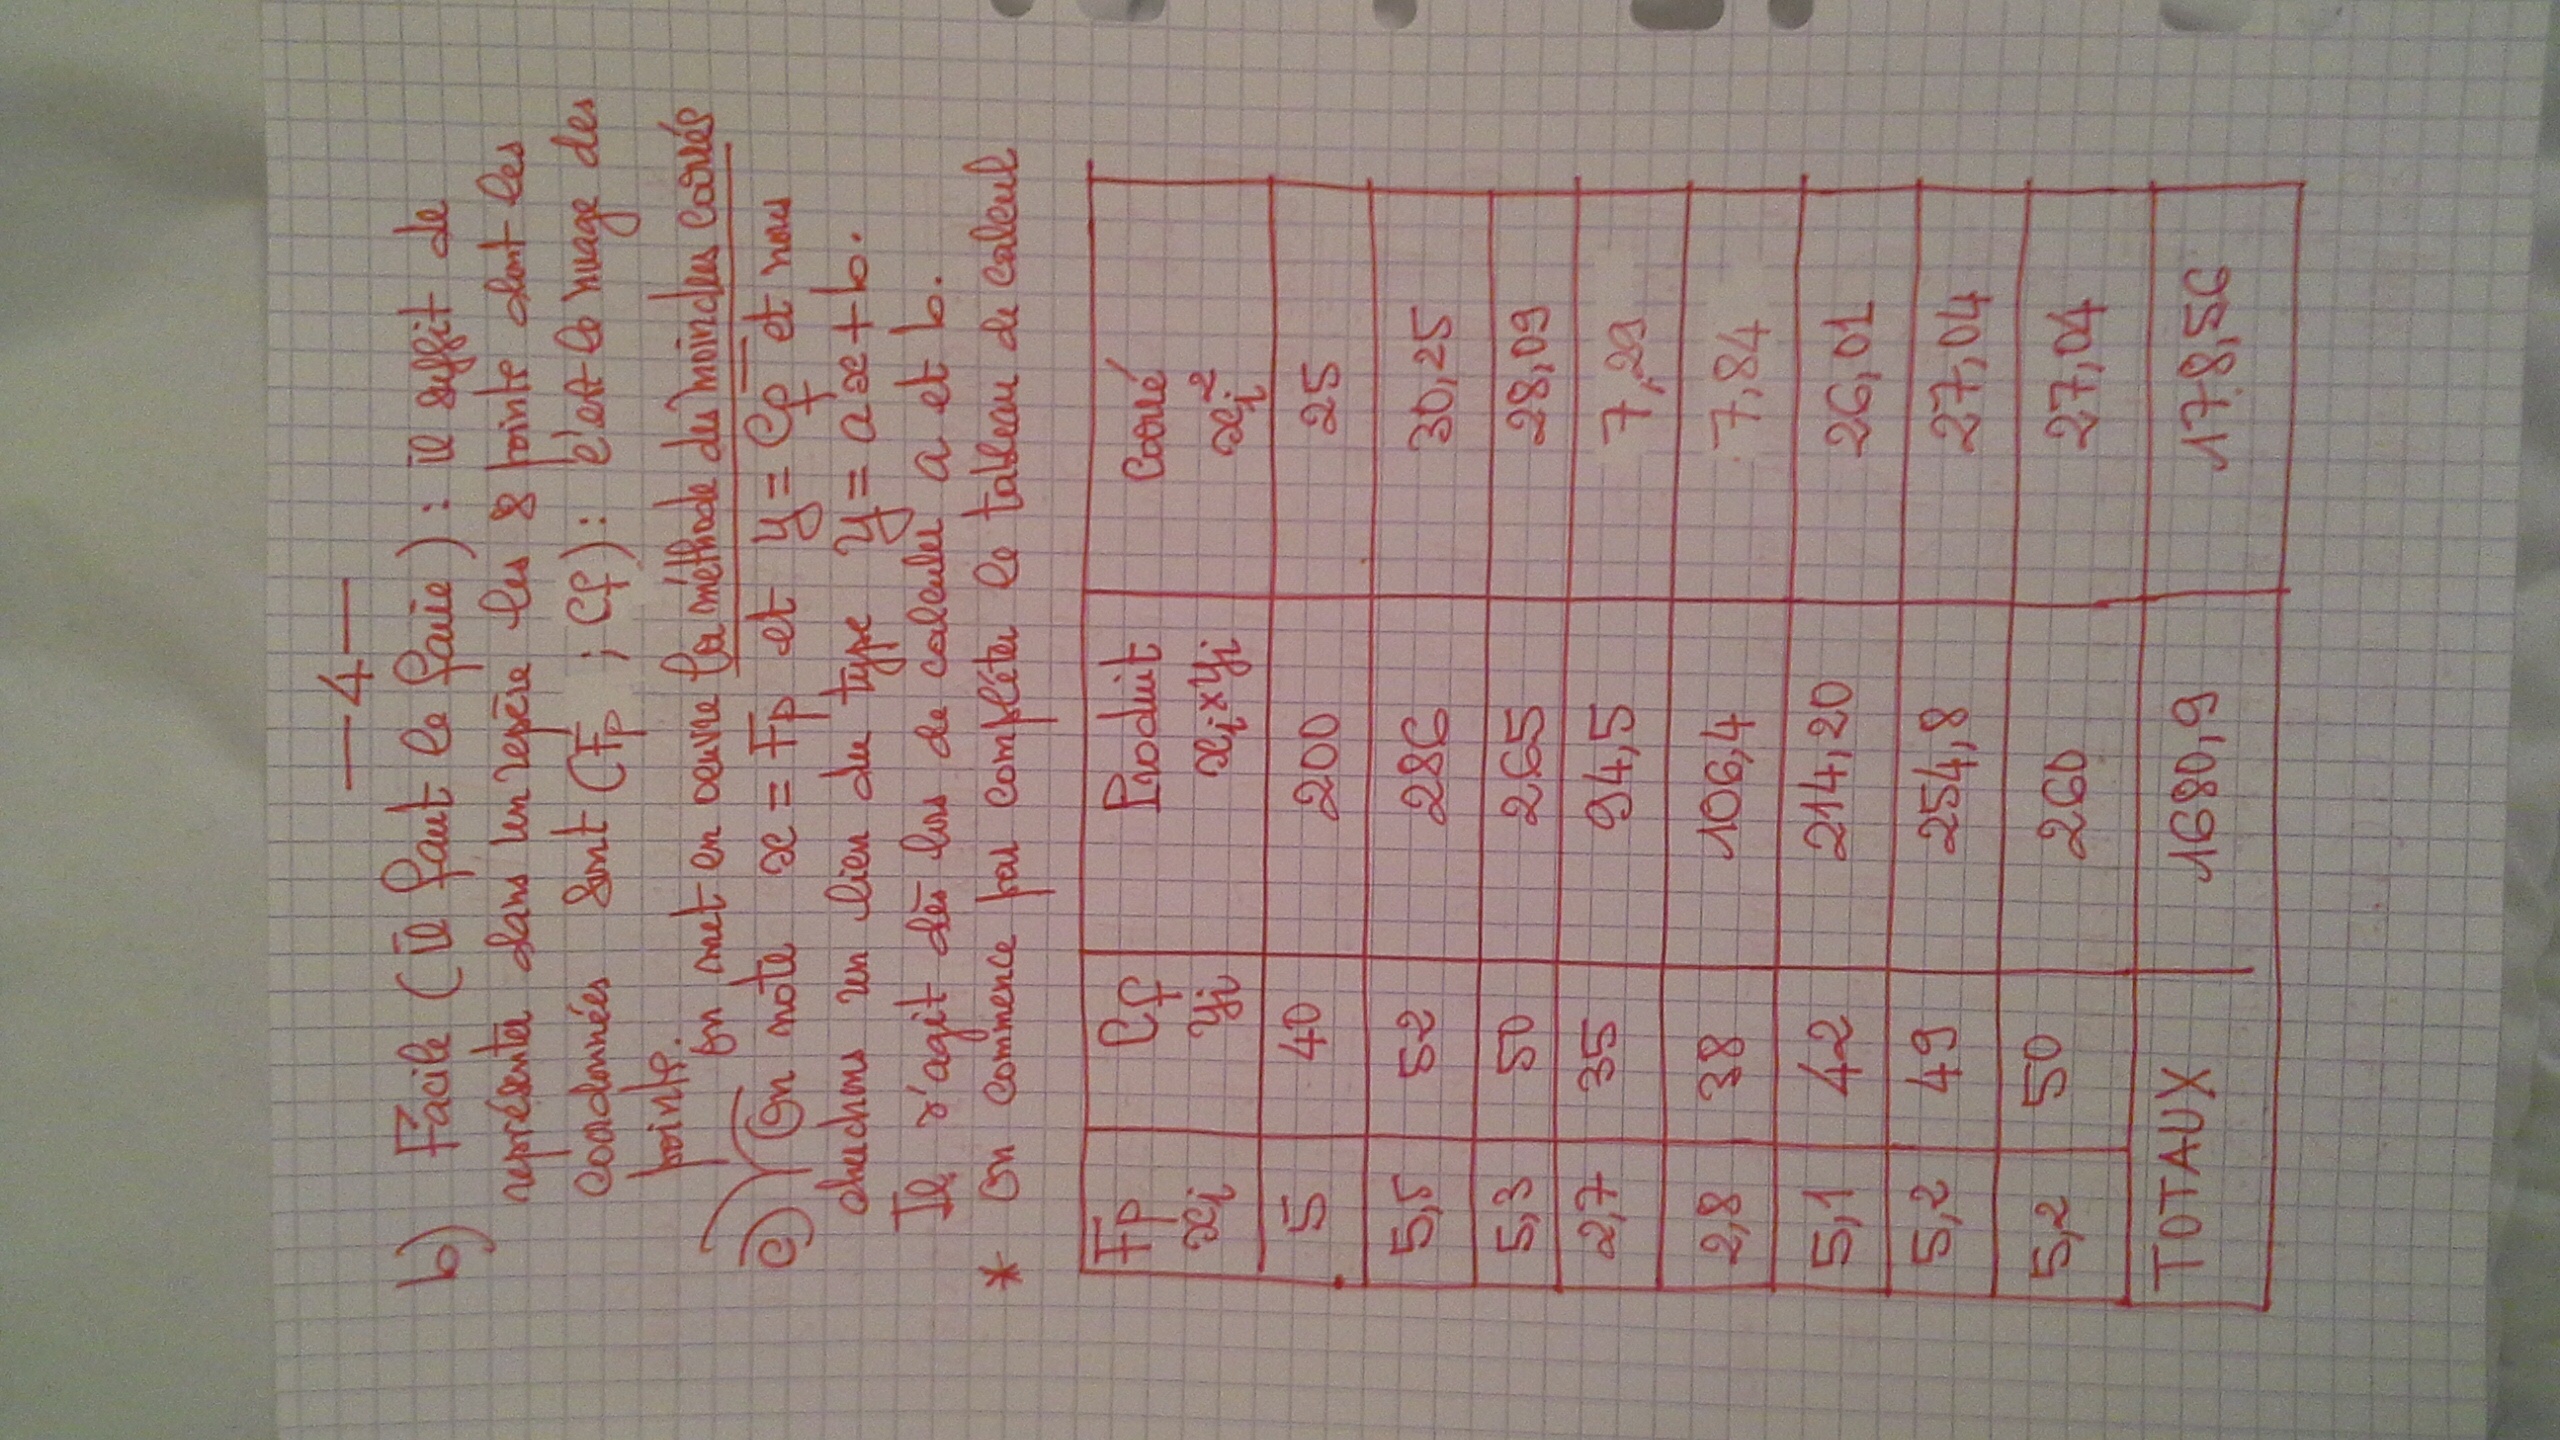 — 4 —
b) Facile (il faut le faire) : il suffit de
représenter dans un repère les 8 points dont les
coordonnées sont (Fp ; Cf) : c'est le nuage des
points.
on met en oeuvre la méthode des moindres carrés
c) On note x = Fp et y = Cf et nous
cherchons un lien du type y = ax + b.
Il s'agit dès lors de calculer a et b.
* on commence par compléter le tableau de calcul
Fp xi Cf yi Produit xi×yi Carré xi²
5 40 200 25
5,5 52 286 30,25
5,3 50 265 28,09
2,7 35 94,5 7,29
2,8 38 106,4 7,84
5,1 42 214,20 26,01
5,2 49 254,8 27,04
5,2 50 260 27,04
TOTAUX 1680,9 178,56